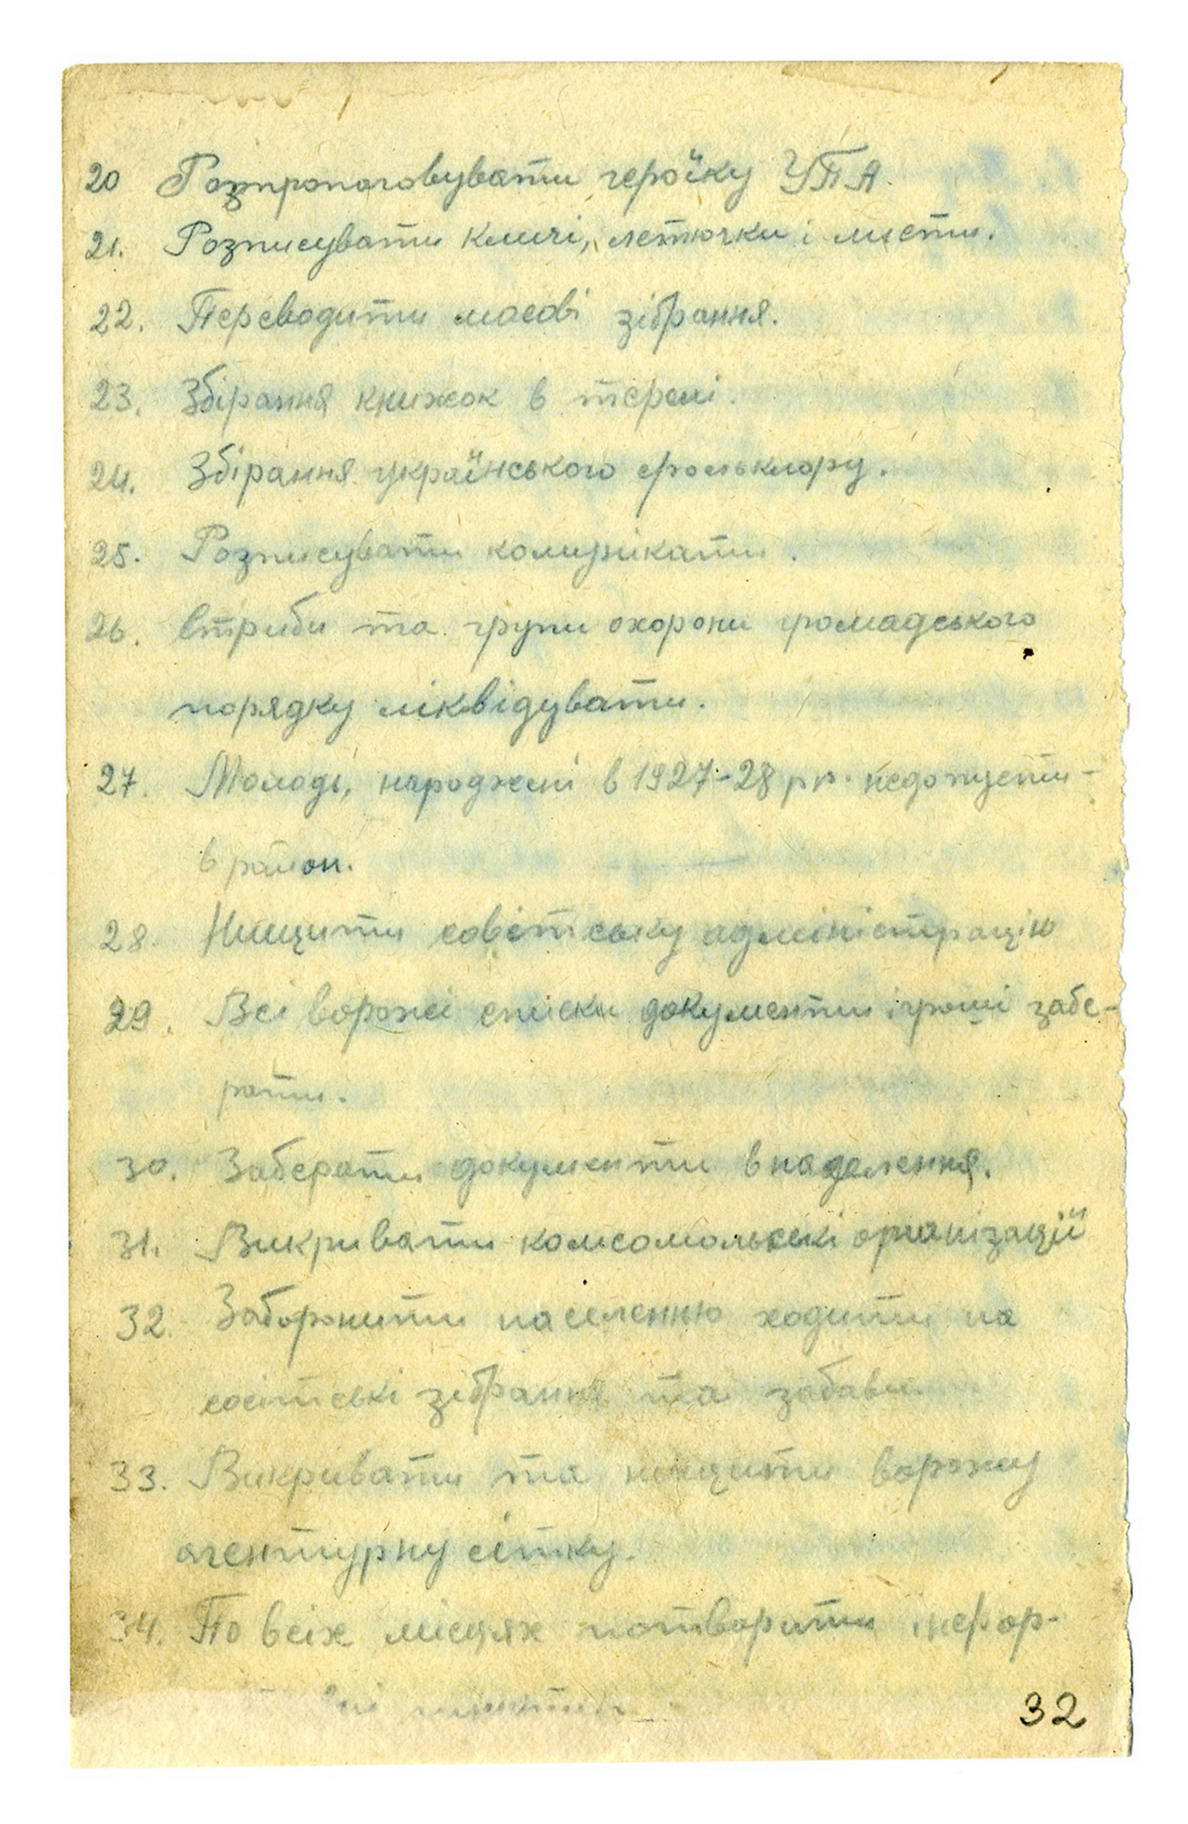 20 Розпропоговувати героїку УПА.
21. Розписувати кличі, летючки і листи.
22. Переводити масові зібрання.
23. Збірання книжок в терені.
24. Збірання українського фольклору.
25. Розписувати комунікати.
26. Стриби та групи охорони громадського
порядку ліквідувати.
27. Молодь, народжені в 1927-28 рр. недопусти-
в район.
28. Нищити совєтську адміністрацію
29. Всі ворожі списки документи і гроші забе-
рати.
30. Заберати документи в населення.
31. Викривати комсомольскі організації
32. Заборонити населенню ходити на
совітські зібрання та забави.
33. Викривати та нищити ворожу
агентурну сітку.
34. По всіх місцях потворити інфор-
пункти
32